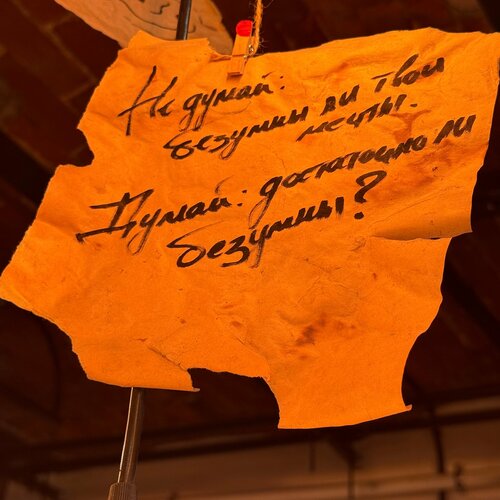 Не думай:
безумны ли твои
мечты.
Думай: достаточно ли
безумны?